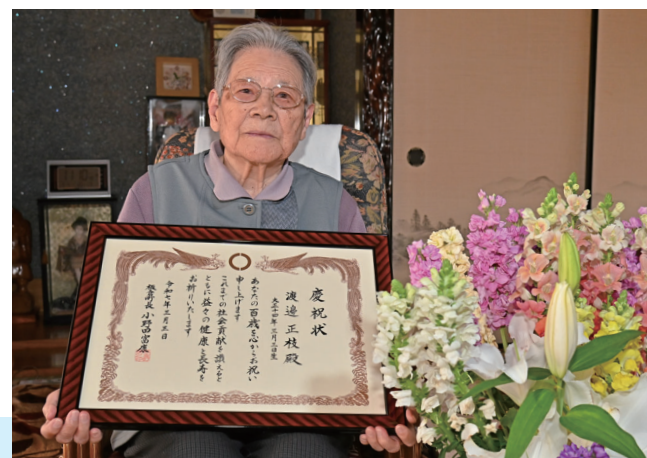 慶祝状
渡邉正枝殿
大正十四年三月三日生
あなたの百歳を心からお祝い
申し上げます
これまでの社会貢献を讃えると
ともに益々の健康と長寿を
お祈りいたします
令和七年三月三日
小野田富康